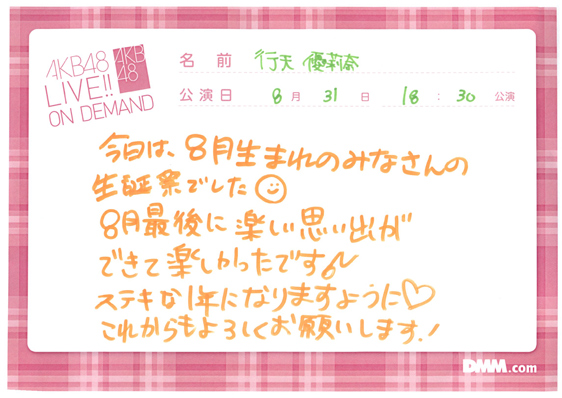 AKB48
LIVE!!
ON DEMAND
AKB
48
名 前 行天 優莉奈
公演日 8月 31日 18:30 公演
今日は、8月生まれのみなさんの
生誕祭でした☺
8月最後に楽しい思い出が
できて楽しかったです♪
ステキな1年になりますように♡
これからもよろしくお願いします!
DMM.com